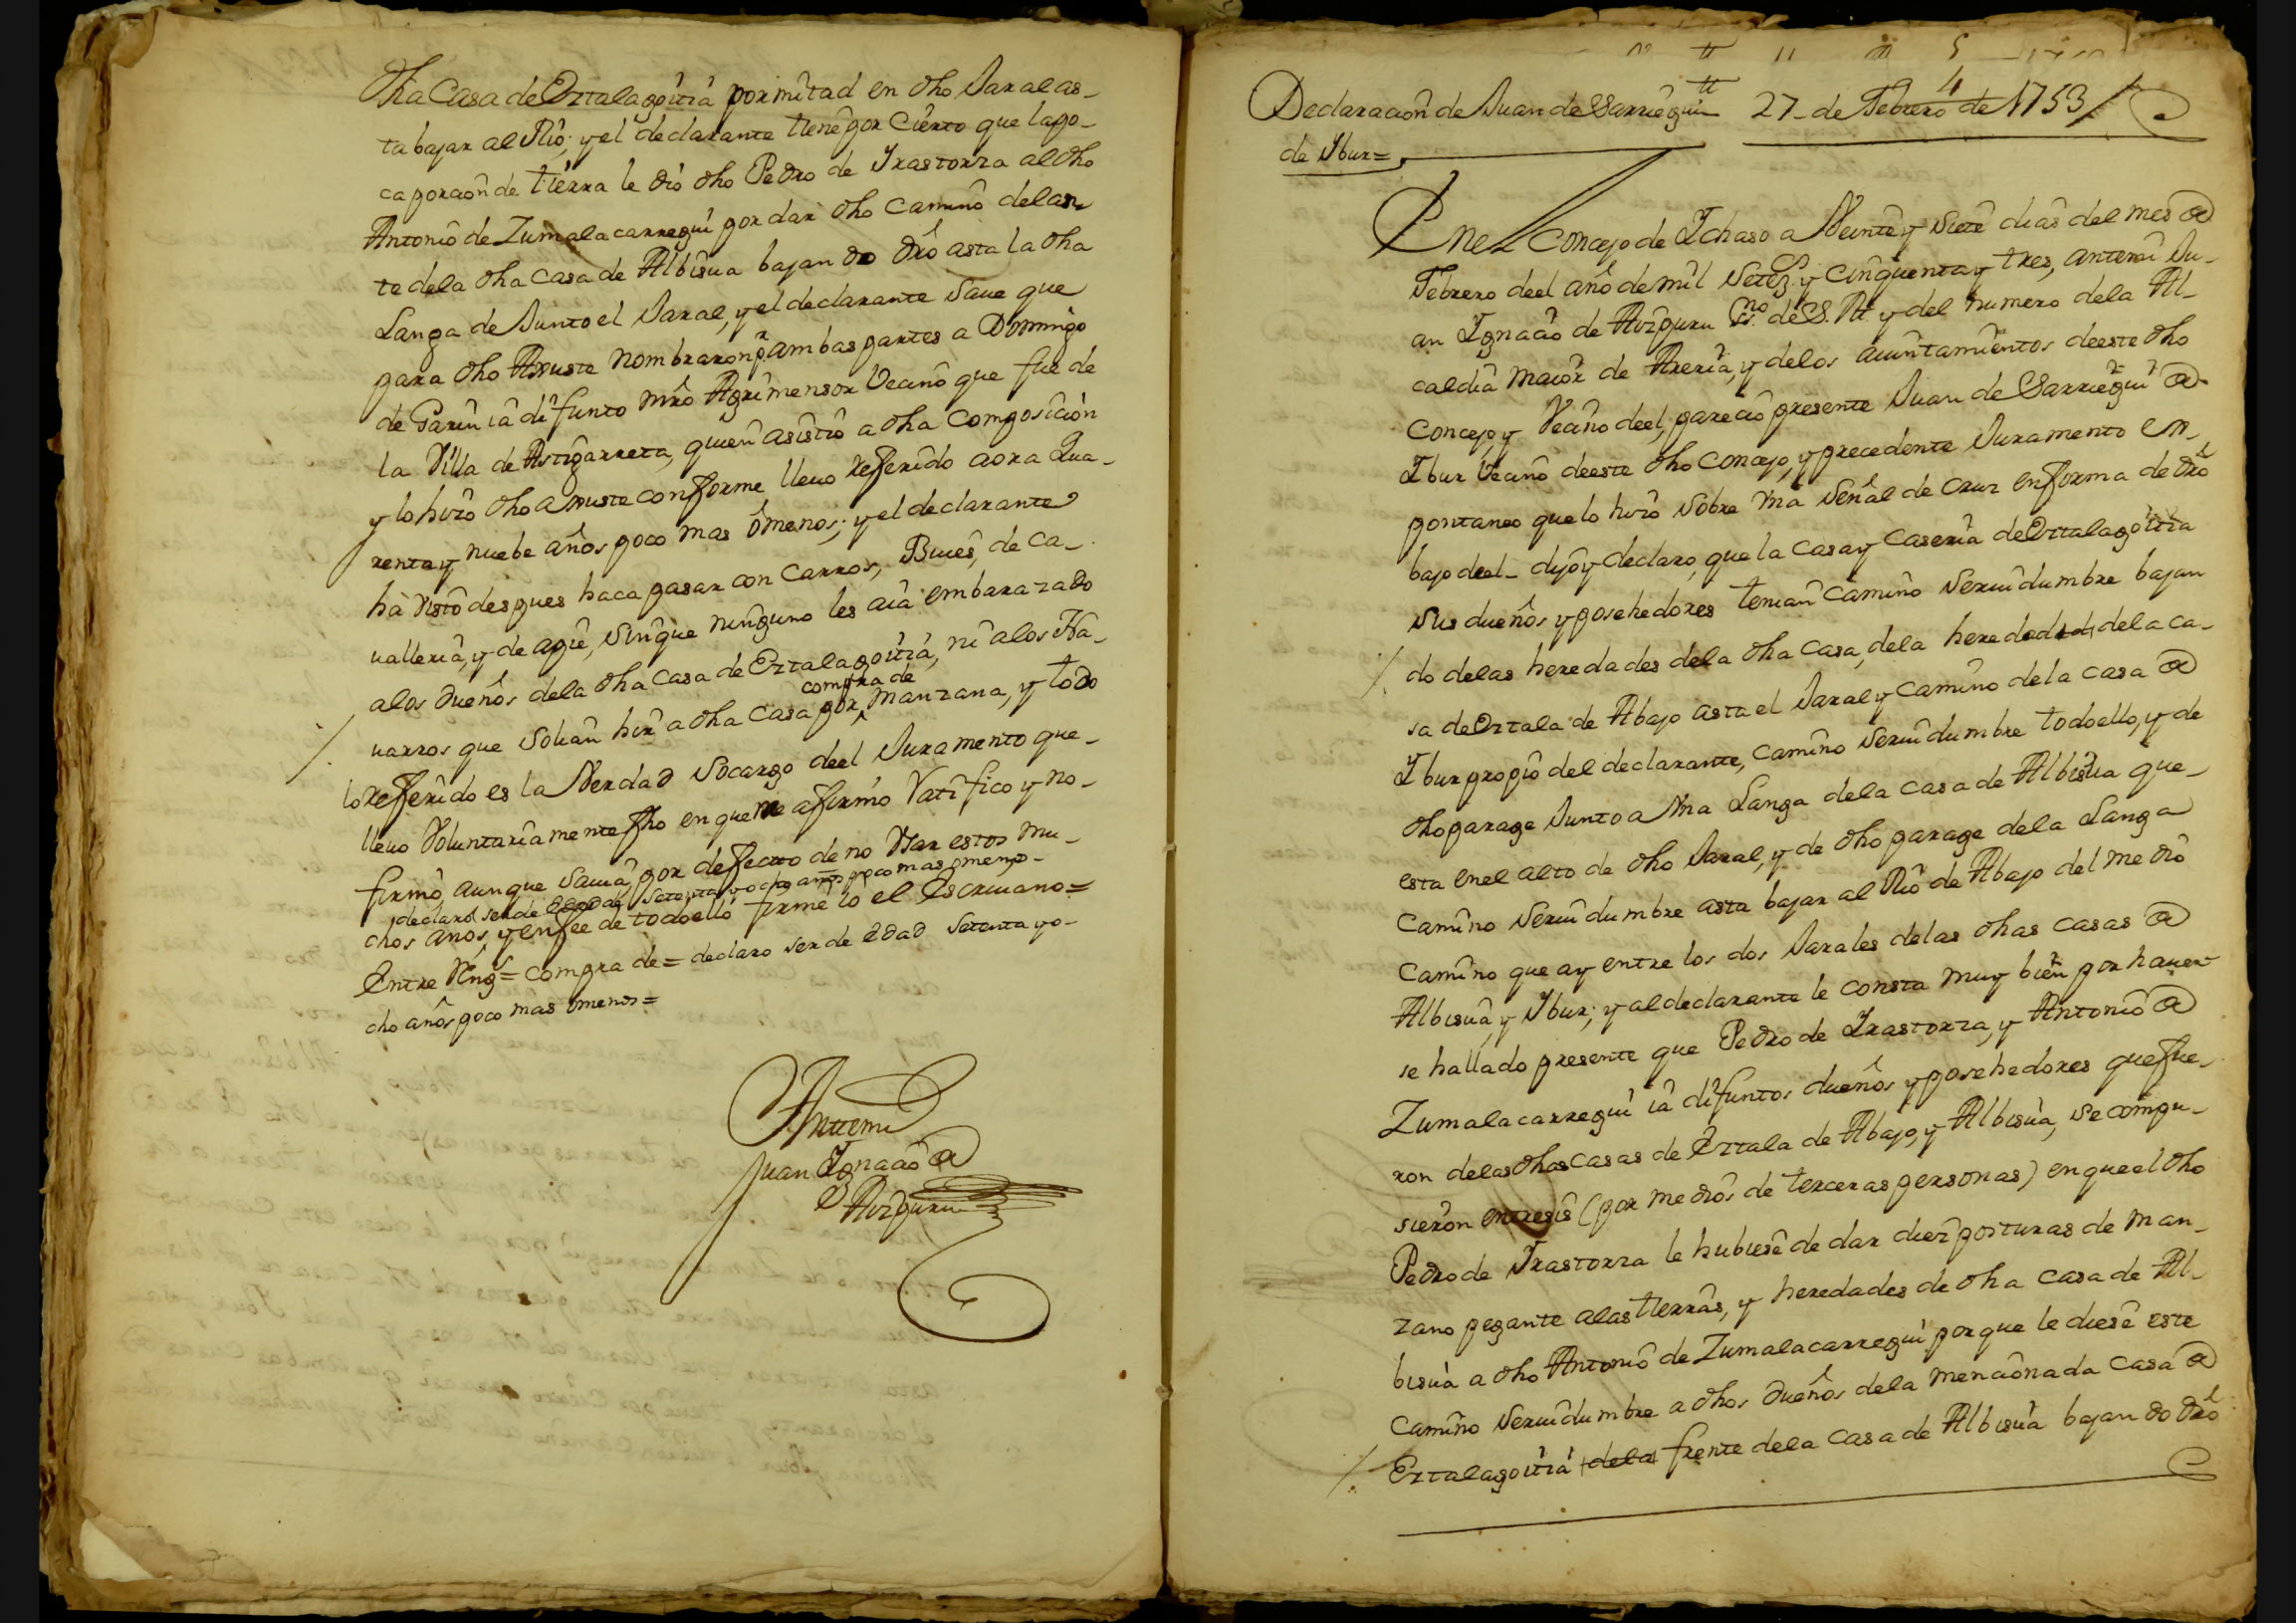 dha Casa de Eztalagoitia por mitad en dho Jaral as-
ta bajar al Rio; y el declarante tiene por Cierto que la po-
ca porcion de tierra le dio dho Pedro de Yrastorza al dho
Antonio de Zumalacarregui por dar dho Camino delan-
te dela dha casa de Albisua bajando dro asta la dha
Langa de Junto el Jaral, y el declarante save que
para dho Ajuste nombraron pr ambas partes a Domingo
de Garin ia difunto mro Agrimensor Vecino que fue de
la Villa de Astigarreta, quien asistio a dha Composicion
y lo hizo dho ajuste conforme llevo Referido aora Qua-
renta y nuebe años poco mas ô menos; y el declarante
hà visto despues haca pasar con Carros, Bueis, de Ca-
valleria, y de apie, sin que ninguno les aia embarazado
alos dueños dela dha Casa de Eztalagoitia, ni alos Na-
varros que solian hir a dha Casa por compra de Manzana, y todo
lo Referido es la Verdad socargo deel Juramento que
llevo Voluntariamente fho en que me afirmo Ratifico y no
firmò aunque savia, por defecto de no Usar estos mu-
declaró ser de edad de setenta y ocho años poco mas omenos-
chos años, y en fee de todo ello firmé Yo el Escrivano=
Entre Rengs= compra de= declaro ser de edad setenta y o-
cho años poco mas omenos=
Antemi
Juan Ygnacio de
Aizpuru
Declaracion de Juan de Sarriegui 27 de Febrero de 1753
de Ybur=
En el Concejo de Ychaso a Veinte y Siete dias del mes de
Febrero deel año de mil Setezs. y Cinquenta y tres, antemi Ju-
an Ygnacio de Aizpuru Esno. de S. M. y del numero dela Al-
caldia maior de Areria, y delos aiuntamientos deeste dho
Concejo, y Vecino deel, parecio presente Juan de Sarriegui de
Ybur Vecino deeste dho Concejo, y precedente Juramento es-
pontaneo que lo hizo sobre Vna señal de Cruz en forma de dro
bajo deel dijo y declaro, que la Casa y Caseria de Eztalagoitia
sus dueños y posehedores tenian Camino servidumbre bajan
do delas heredades dela dha Casa, dela heredad dela ca-
sa de Eztala de Abajo asta el Jaral y Camino dela casa de
Ybur propio del declarante, Camino servidumbre todo ello, y de
dho parage Junto a Vna Langa dela casa de Albisua que
esta en el alto de dho Jaral, y de dho parage dela Langa
Camino servidumbre asta bajar al Rio de Abajo del medio
Camino que ay entre los dos Jarales delas dhas casas de
Albisua, y Ybur; y al declarante le consta muy bien por haver
se hallado presente que Pedro de Yrastorza, y Antonio de
Zumalacarregui ia difuntos dueños y posehedores que fue-
ron delas dhas casas de Eztala de Abajo, y Albisua, se compu-
sieron entresis (por medios de terceras personas) en que el dho
Pedro de Yrastorza le hubiese de dar diez posturas de man-
zano pegante alas tierras, y heredades de dha casa de Al-
bisua a dho Antonio de Zumalacarregui porque le diese este
Camino servidumbre a dhos dueños dela mencionada casa de
Eztalagoitia dela frente dela Casa de Albisua bajando dro